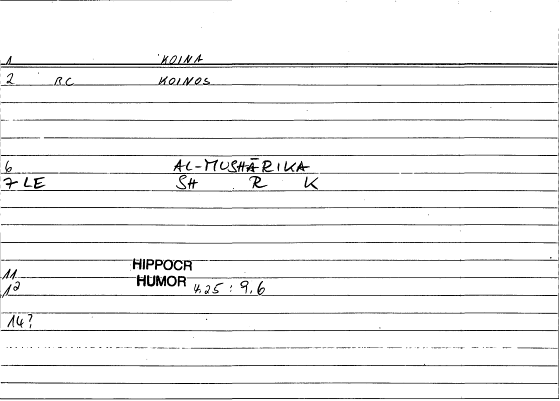 1 KOINA
2 RC KOINOS
6 AL-MUSHĀRIKA
7 LE SH R K
11 HIPPOCR
12 HUMOR 425 : 9.6
14?